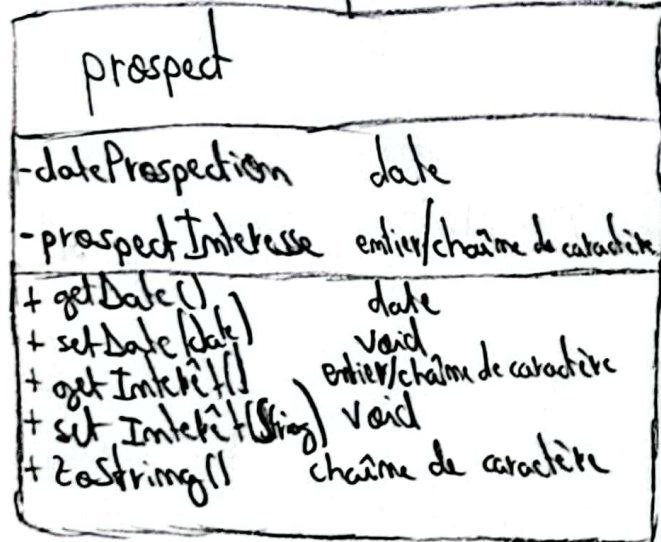 prospect
-dateProspection date
-prospectInteresse entier/chaîne de caractère
+ getDate() date
+ setDate(date) void
+ getInterêt() entier/chaîne de caractère
+ set Interêt(String) void
+ toString() chaîne de caractère